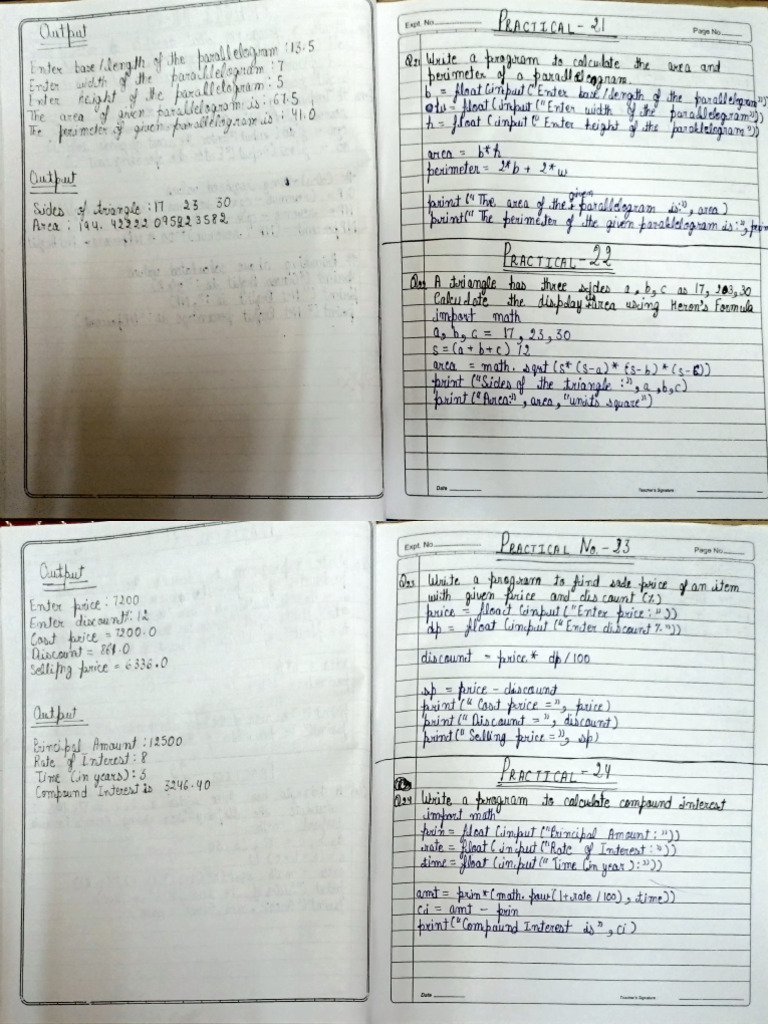 Output
Enter base/length of the parallelogram : 13.5
Enter width of the parallelogram : 7
Enter height of the parallelogram : 5
The area of given parallelogram is : 67.5
The perimeter of given parallelogram is : 41.0
Output
Sides of triangle : 17 23 30
Area : 194.42222095223582
Expt. No.
PRACTICAL - 21
Page No.
Q21 Write a program to calculate the area and
perimeter of a parallelogram.
b = float(input("Enter base/length of the parallelogram"))
w = float(input("Enter width of the parallelogram"))
h = float(input("Enter height of the parallelogram"))
area = b*h
perimeter = 2*b + 2*w
print("The area of the given parallelogram is:", area)
print("The perimeter of the given parallelogram is:",
PRACTICAL - 22
Q22 A triangle has three sides a, b, c as 17, 23, 30
Calculate the display area using Heron's Formula
import math
a, b, c = 17, 23, 30
s = (a + b + c) /2
area = math.sqrt(s*(s-a)*(s-b)*(s-c))
print("Sides of the triangle :", a, b, c)
print("Area:", area, "units square")
Date
Teacher's Signature
Output
Enter price : 7200
Enter discount: 12
Cost price = 7200.0
Discount = 864.0
Selling price = 6336.0
Output
Principal Amount : 12500
Rate of Interest : 8
Time (in years) : 3
Compound Interest is 3246.40
Expt. No.
PRACTICAL No. - 23
Page No.
Q23 Write a program to find sale price of an item
with given price and discount (%)
price = float(input("Enter price : "))
dp = float(input("Enter discount % "))
discount = price * dp/100
sp = price - discount
print("Cost price =", price)
print("Discount =", discount)
print("Selling price =", sp)
PRACTICAL - 24
Q24 Write a program to calculate compound interest
import math
prin = float(input("Principal Amount : "))
rate = float(input("Rate of Interest : "))
time = float(input("Time (in year) : "))
amt = prin*(math.pow(1+rate/100), time))
ci = amt - prin
print("Compound Interest is", ci)
Date
Teacher's Signature